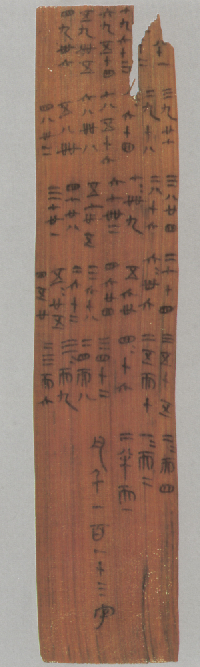 十一
七九六十三
六九五十四
五九卌五
四九卅六
三九廿七
二九十八
八八六十四
七八五十六
六八卌八
五八卌
四八卅二
三八廿四
二八十六
七七卌九
六七卌二
五七卅五
四七廿八
三七廿一
二七十四
六六卅六
五六卅
四六廿四
三六十八
二六十二
五五廿五
四五廿
三五十五
二五而十
四四十六
三四十二
二四而八
三三而九
二三而六
二二而四
一一而二
二半而一
凡千一百一十三字